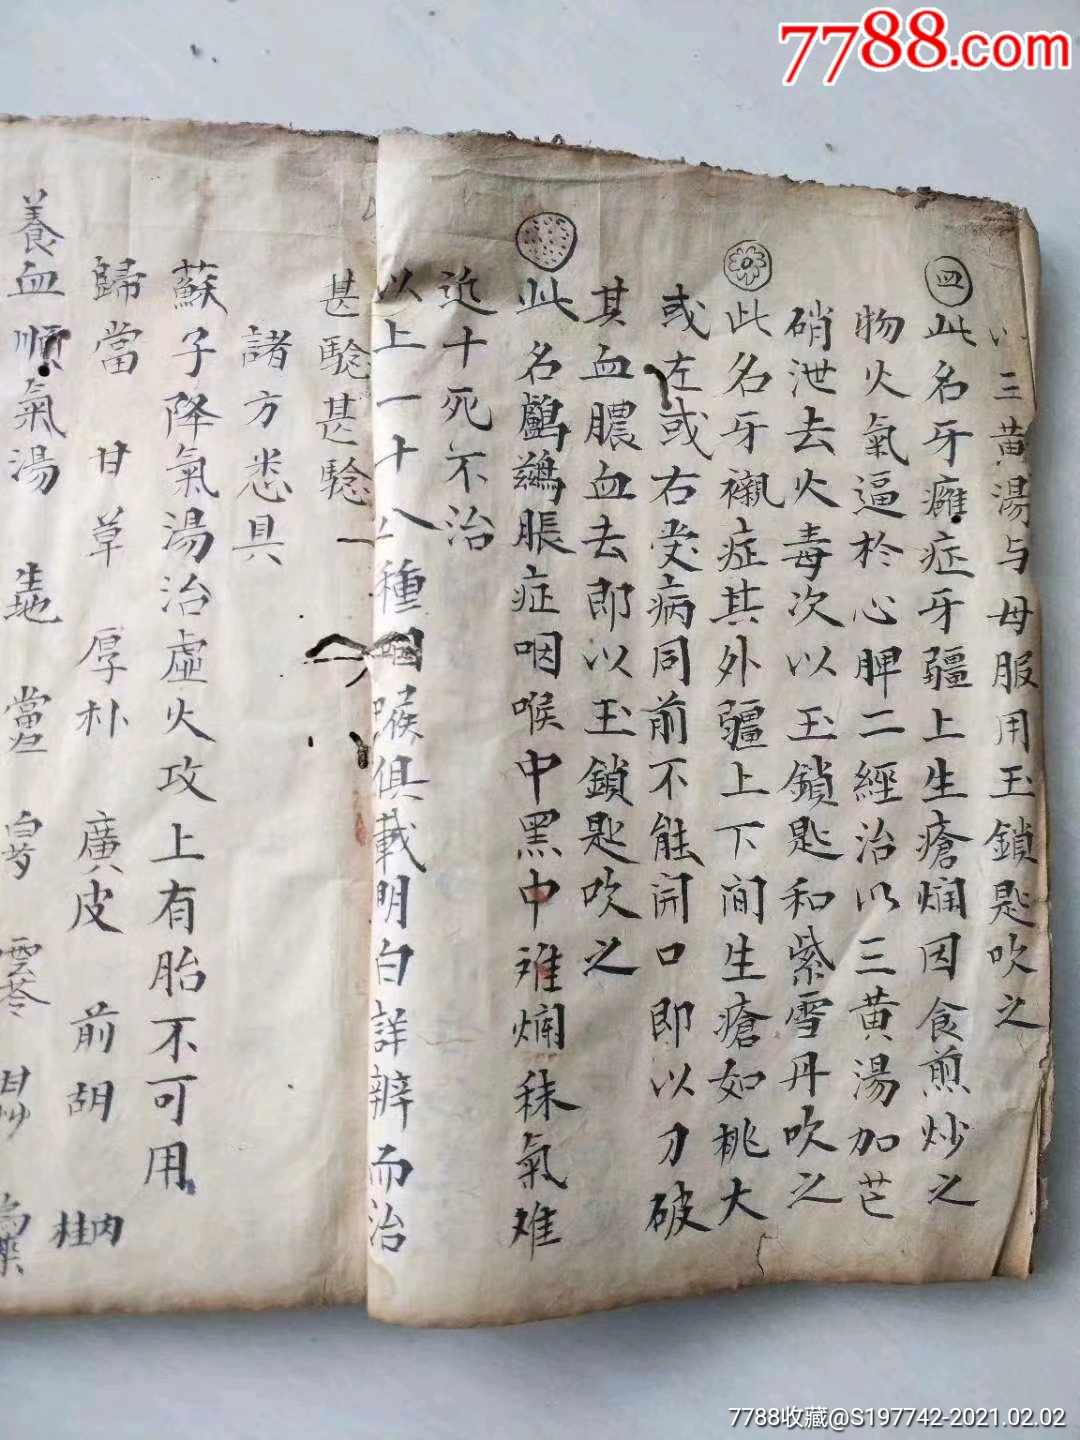 7788.com
以三黄湯与母服用玉鎖匙吹之
四
此名牙癰症牙疆上生瘡烟因食煎炒之
物火氣逼於心脾二經治以三黄湯加芒
硝泄去火毒次以玉鎖匙和紫雪丹吹之
此名牙襯症其外疆上下间生瘡如桃大
或左或右受病同前不能開口即以刀破
其血膿血去即以玉鎖匙吹之
此名鸕鷀脹症咽喉中黑中难爛秣氣难
近十死不治
以上一十八種咽喉俱載明白詳辨而治
甚騐甚騐
諸方悉具
蘇子降氣湯治虛火攻上有胎不可用
歸當 甘草 厚朴 廣皮 前胡 肉桂
養血順氣湯 生地 當歸 白芍 雲苓 甘草
7788收藏@S197742-2021.02.02